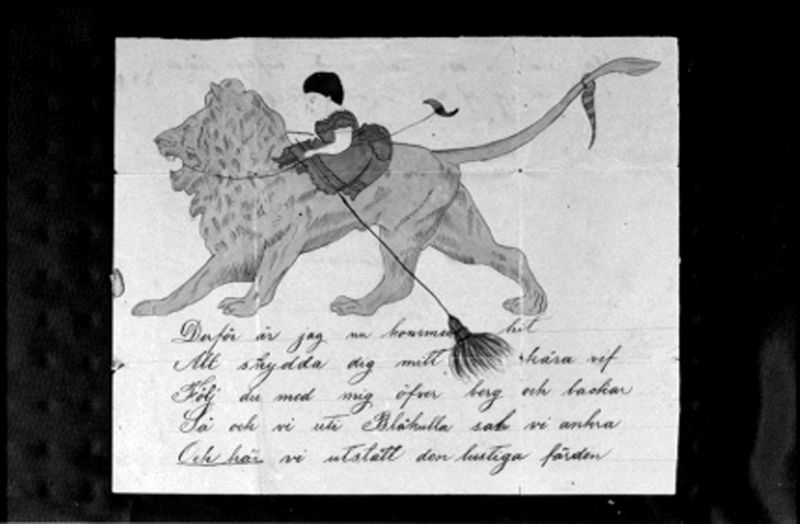 Derför är jag nu kommen hit
Att skydda dig mitt kära vif
Följ du med mig öfver berg och backar
Så och vi uti Blåkulla vi ankra
Och här vi utstått den lustiga färden